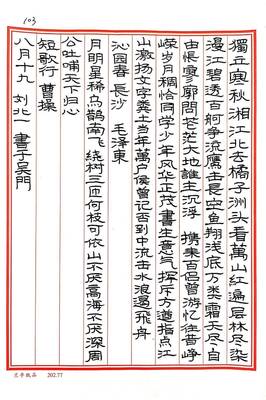 103
獨立寒秋湘江北去橘子洲头看萬山紅遍层林尽染
漫江碧透百舸争流鹰击長空鱼翔浅底万类霜天尽自
由悵寥廓問苍茫大地誰主沉浮 携来百侣曾游忆往昔峥
嵘岁月稠恰同学少年风华正茂書生意气挥斥方遒指点江
山激扬文字粪土当年萬户侯曾记否到中流击水浪遏飞舟
沁园春 長沙 毛泽東
月明星稀乌鹊南飞绕树三匝何枝可依山不厌高海不厌深周
公吐哺天下归心
短歌行 曹操
八月十九 刘北一 書于吴門
兰亭纸品 202.77